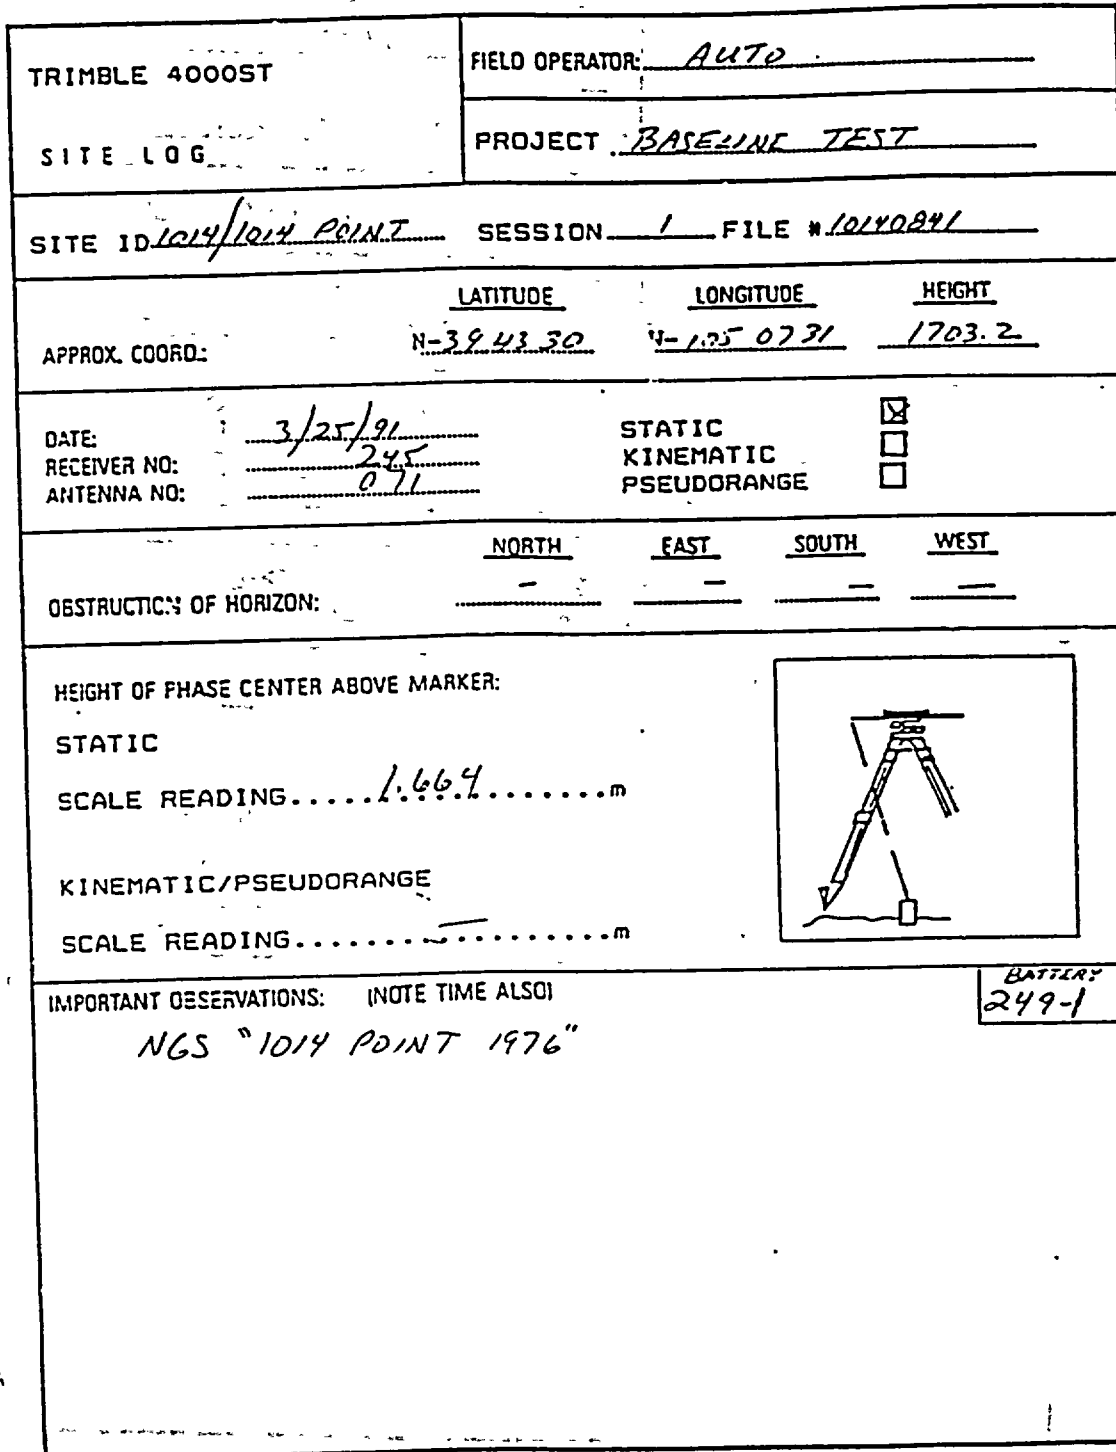 TRIMBLE 4000ST
SITE LOG
FIELD OPERATOR: AUTO
PROJECT BASELINE TEST
SITE ID 1014/1014 POINT SESSION 1 FILE # 10140841
LATITUDE LONGITUDE HEIGHT
APPROX. COORD.: N-39 43 30 W-105 07 31 1703.2
DATE: 3/25/91
RECEIVER NO: 245
ANTENNA NO: 071
STATIC
KINEMATIC
PSEUDORANGE
NORTH EAST SOUTH WEST
OBSTRUCTION OF HORIZON: – – – –
HEIGHT OF PHASE CENTER ABOVE MARKER:
STATIC
SCALE READING.....1.664.......m
KINEMATIC/PSEUDORANGE
SCALE READING.......–.........m
IMPORTANT OBSERVATIONS: (NOTE TIME ALSO)
BATTERY
249-1
NGS "1014 POINT 1976"